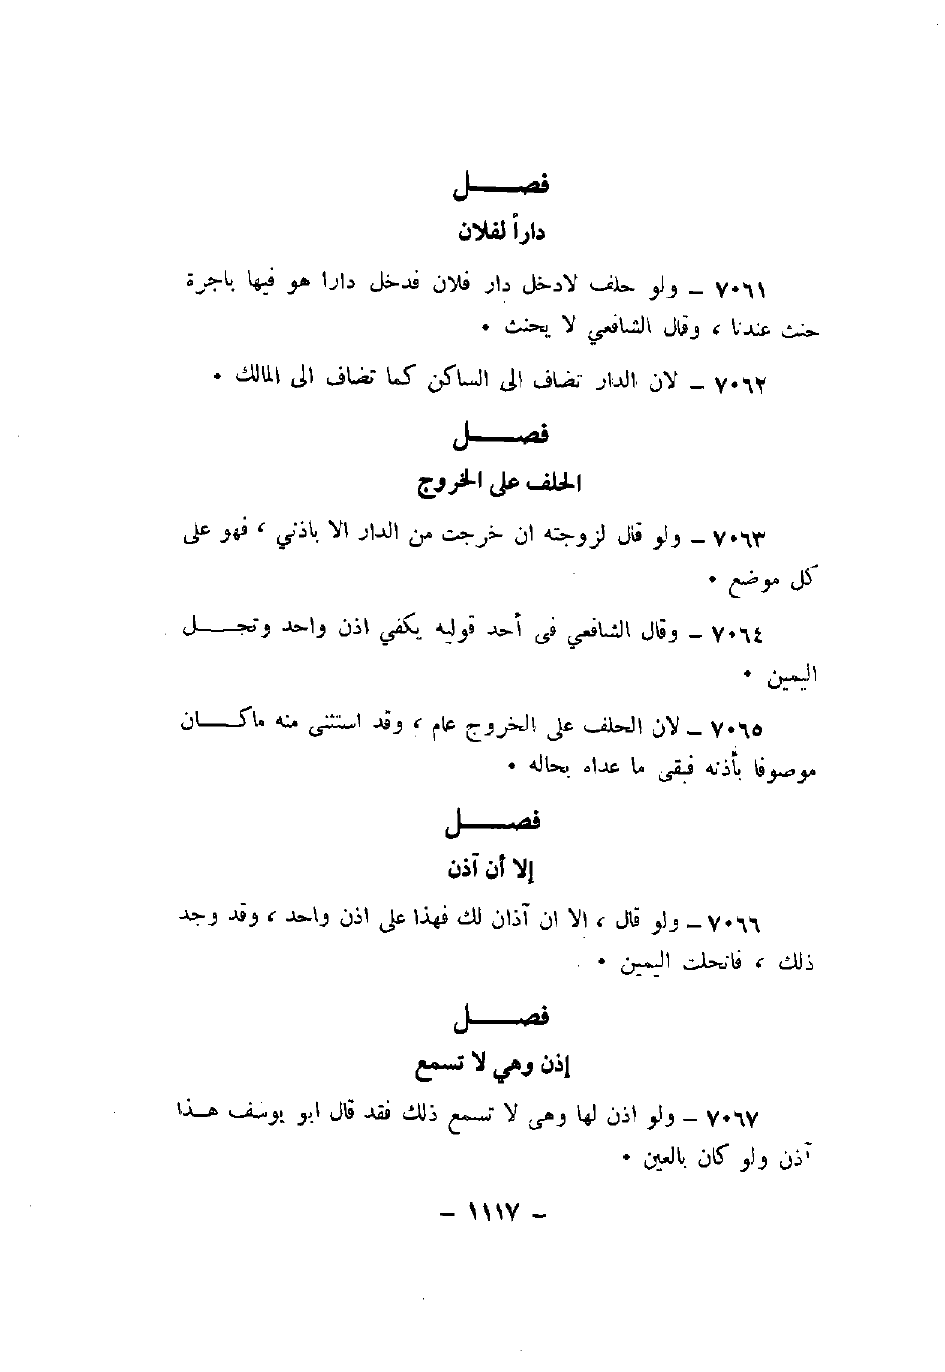 فصـــــل
داراً لفلان
٧٠٦١ – ولو حلف لادخل دار فلان فدخل دارا هو فيها باجرة
حنث عندنا ، وقال الشافعي لا يحنث .
٧٠٦٢ – لان الدار تضاف الى الساكن كما تضاف الى المالك .
فصـــــل
الحلف على الخروج
٧٠٦٣ – ولو قال لزوجته ان خرجت من الدار الا باذني ، فهو على
كل موضع .
٧٠٦٤ – وقال الشافعي فى أحد قوليه يكفي اذن واحد وتحـــل
اليمين .
٧٠٦٥ – لان الحلف على الخروج عام ، وقد استثنى منه ماكـــان
موصوفا بأذنه فبقى ما عداه بحاله .
فصـــــل
إلا أن آذن
٧٠٦٦ – ولو قال ، الا ان آذان لك فهذا على اذن واحد ، وقد وجد
ذلك ، فانحلت اليمين .
فصـــــل
إذن وهي لا تسمع
٧٠٦٧ – ولو اذن لها وهى لا تسمع ذلك فقد قال ابو يوسف هـذا
آذن ولو كان بالعين .
– ١١١٧ –